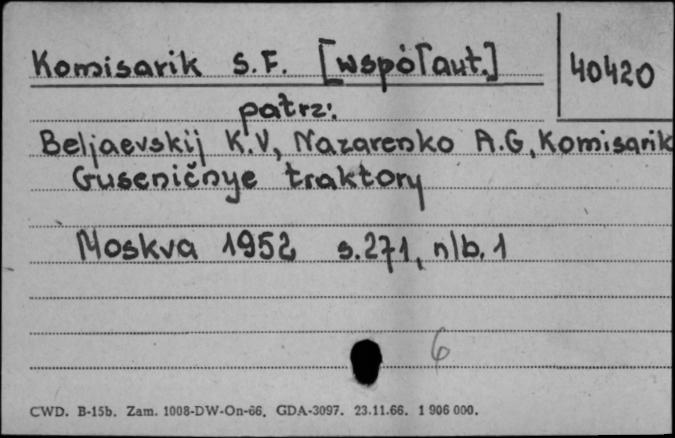 Komisarik S.F. [współaut.]
40420
patrz:
Beljaevskij K.V, Nazarenko A.G, Komisarik
Guseničnye traktory
Moskva 1952 s.271, nlb. 1
6
CWD. B-15b. Zam. 1008-DW-On-66. GDA-3097. 23.11.66. 1 906 000.